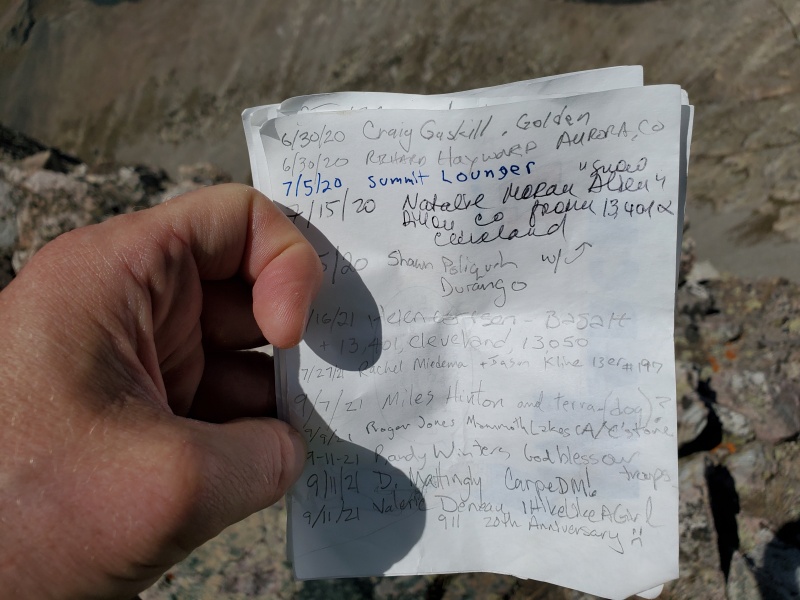 6/30/20 Craig Gaskill. Golden
6/30/20 Richard Hayward Aurora, CO
7/5/20 Summit Lounger
7/15/20 Natalie Moran "Snow Alien"
CO from 13401 &
Cleveland
5/20 Shawn w/
Durango
/16/21 - Basalt
+ 13,401, Cleveland 13050
7/27/21 Rachel Miedema + Jason Kline 13er # 197
9/7/21 Miles Hinton and terra (dog)?
9/9/21 Roger Jones Mammoth Lakes CA/C'stone
9-11-21 Randy Winters God bless our troops
9/11/21 D. Mattingly CarpeDM6
9/11/21 Valerie Deneau IHikeLikeAGirl
911 20th Anniversary